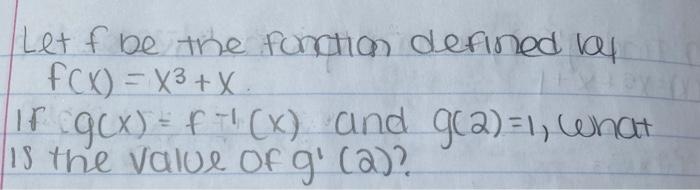 Let f be the function defined by
f(x) = x³ + x.
If g(x) = f⁻¹(x) and g(2)=1, what
is the value of g'(2)?